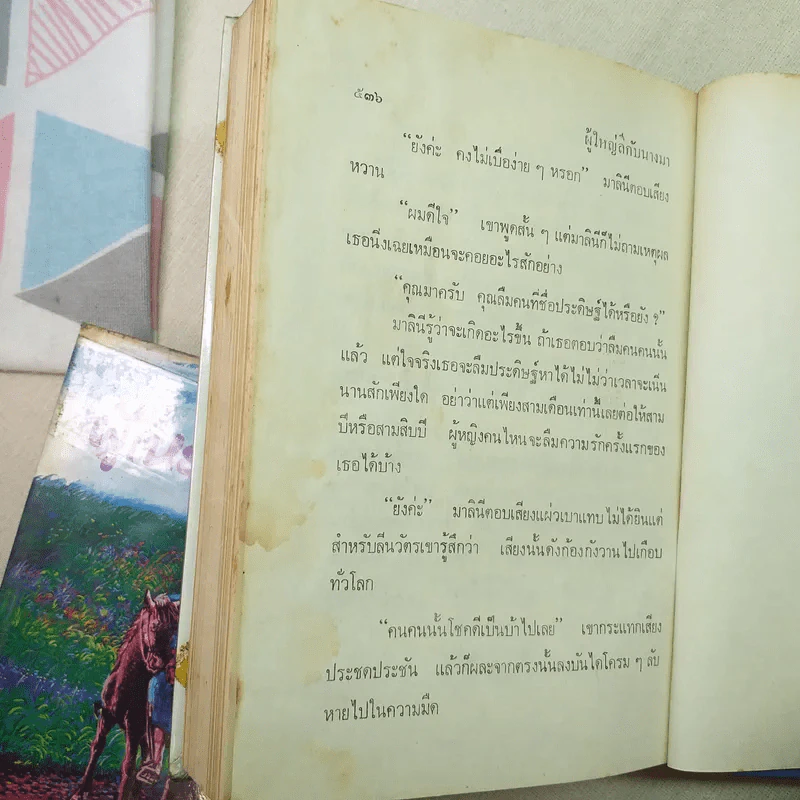 ๕๓๖
ผู้ใหญ่ลีกับนางมา
“ยังค่ะ คงไม่เบื่อง่าย ๆ หรอก” มาลินีตอบเสียง
หวาน
“ผมดีใจ” เขาพูดสั้น ๆ แต่มาลินีก็ไม่ถามเหตุผล
เธอนิ่งเฉยเหมือนจะคอยอะไรสักอย่าง
“คุณมาครับ คุณลืมคนที่ชื่อประดิษฐ์ได้หรือยัง ?”
มาลินีรู้ว่าจะเกิดอะไรขึ้น ถ้าเธอตอบว่าลืมคนคนนั้น
แล้ว แต่ใจจริงเธอจะลืมประดิษฐ์หาได้ไม่ไม่ว่าเวลาจะเนิ่น
นานสักเพียงใด อย่าว่าแต่เพียงสามเดือนเท่านี้เลยต่อให้สาม
ปีหรือสามสิบปี ผู้หญิงคนไหนจะลืมความรักครั้งแรกของ
เธอได้บ้าง
“ยังค่ะ” มาลินีตอบเสียงแผ่วเบาแทบไม่ได้ยินแต่
สำหรับลีนวัตรเขารู้สึกว่า เสียงนั้นดังก้องกังวานไปเกือบ
ทั่วโลก
“คนคนนั้นโชคดีเป็นบ้าไปเลย” เขากระแทกเสียง
ประชดประชัน แล้วก็ผละจากตรงนั้นลงบันไดโครม ๆ ลับ
หายไปในความมืด